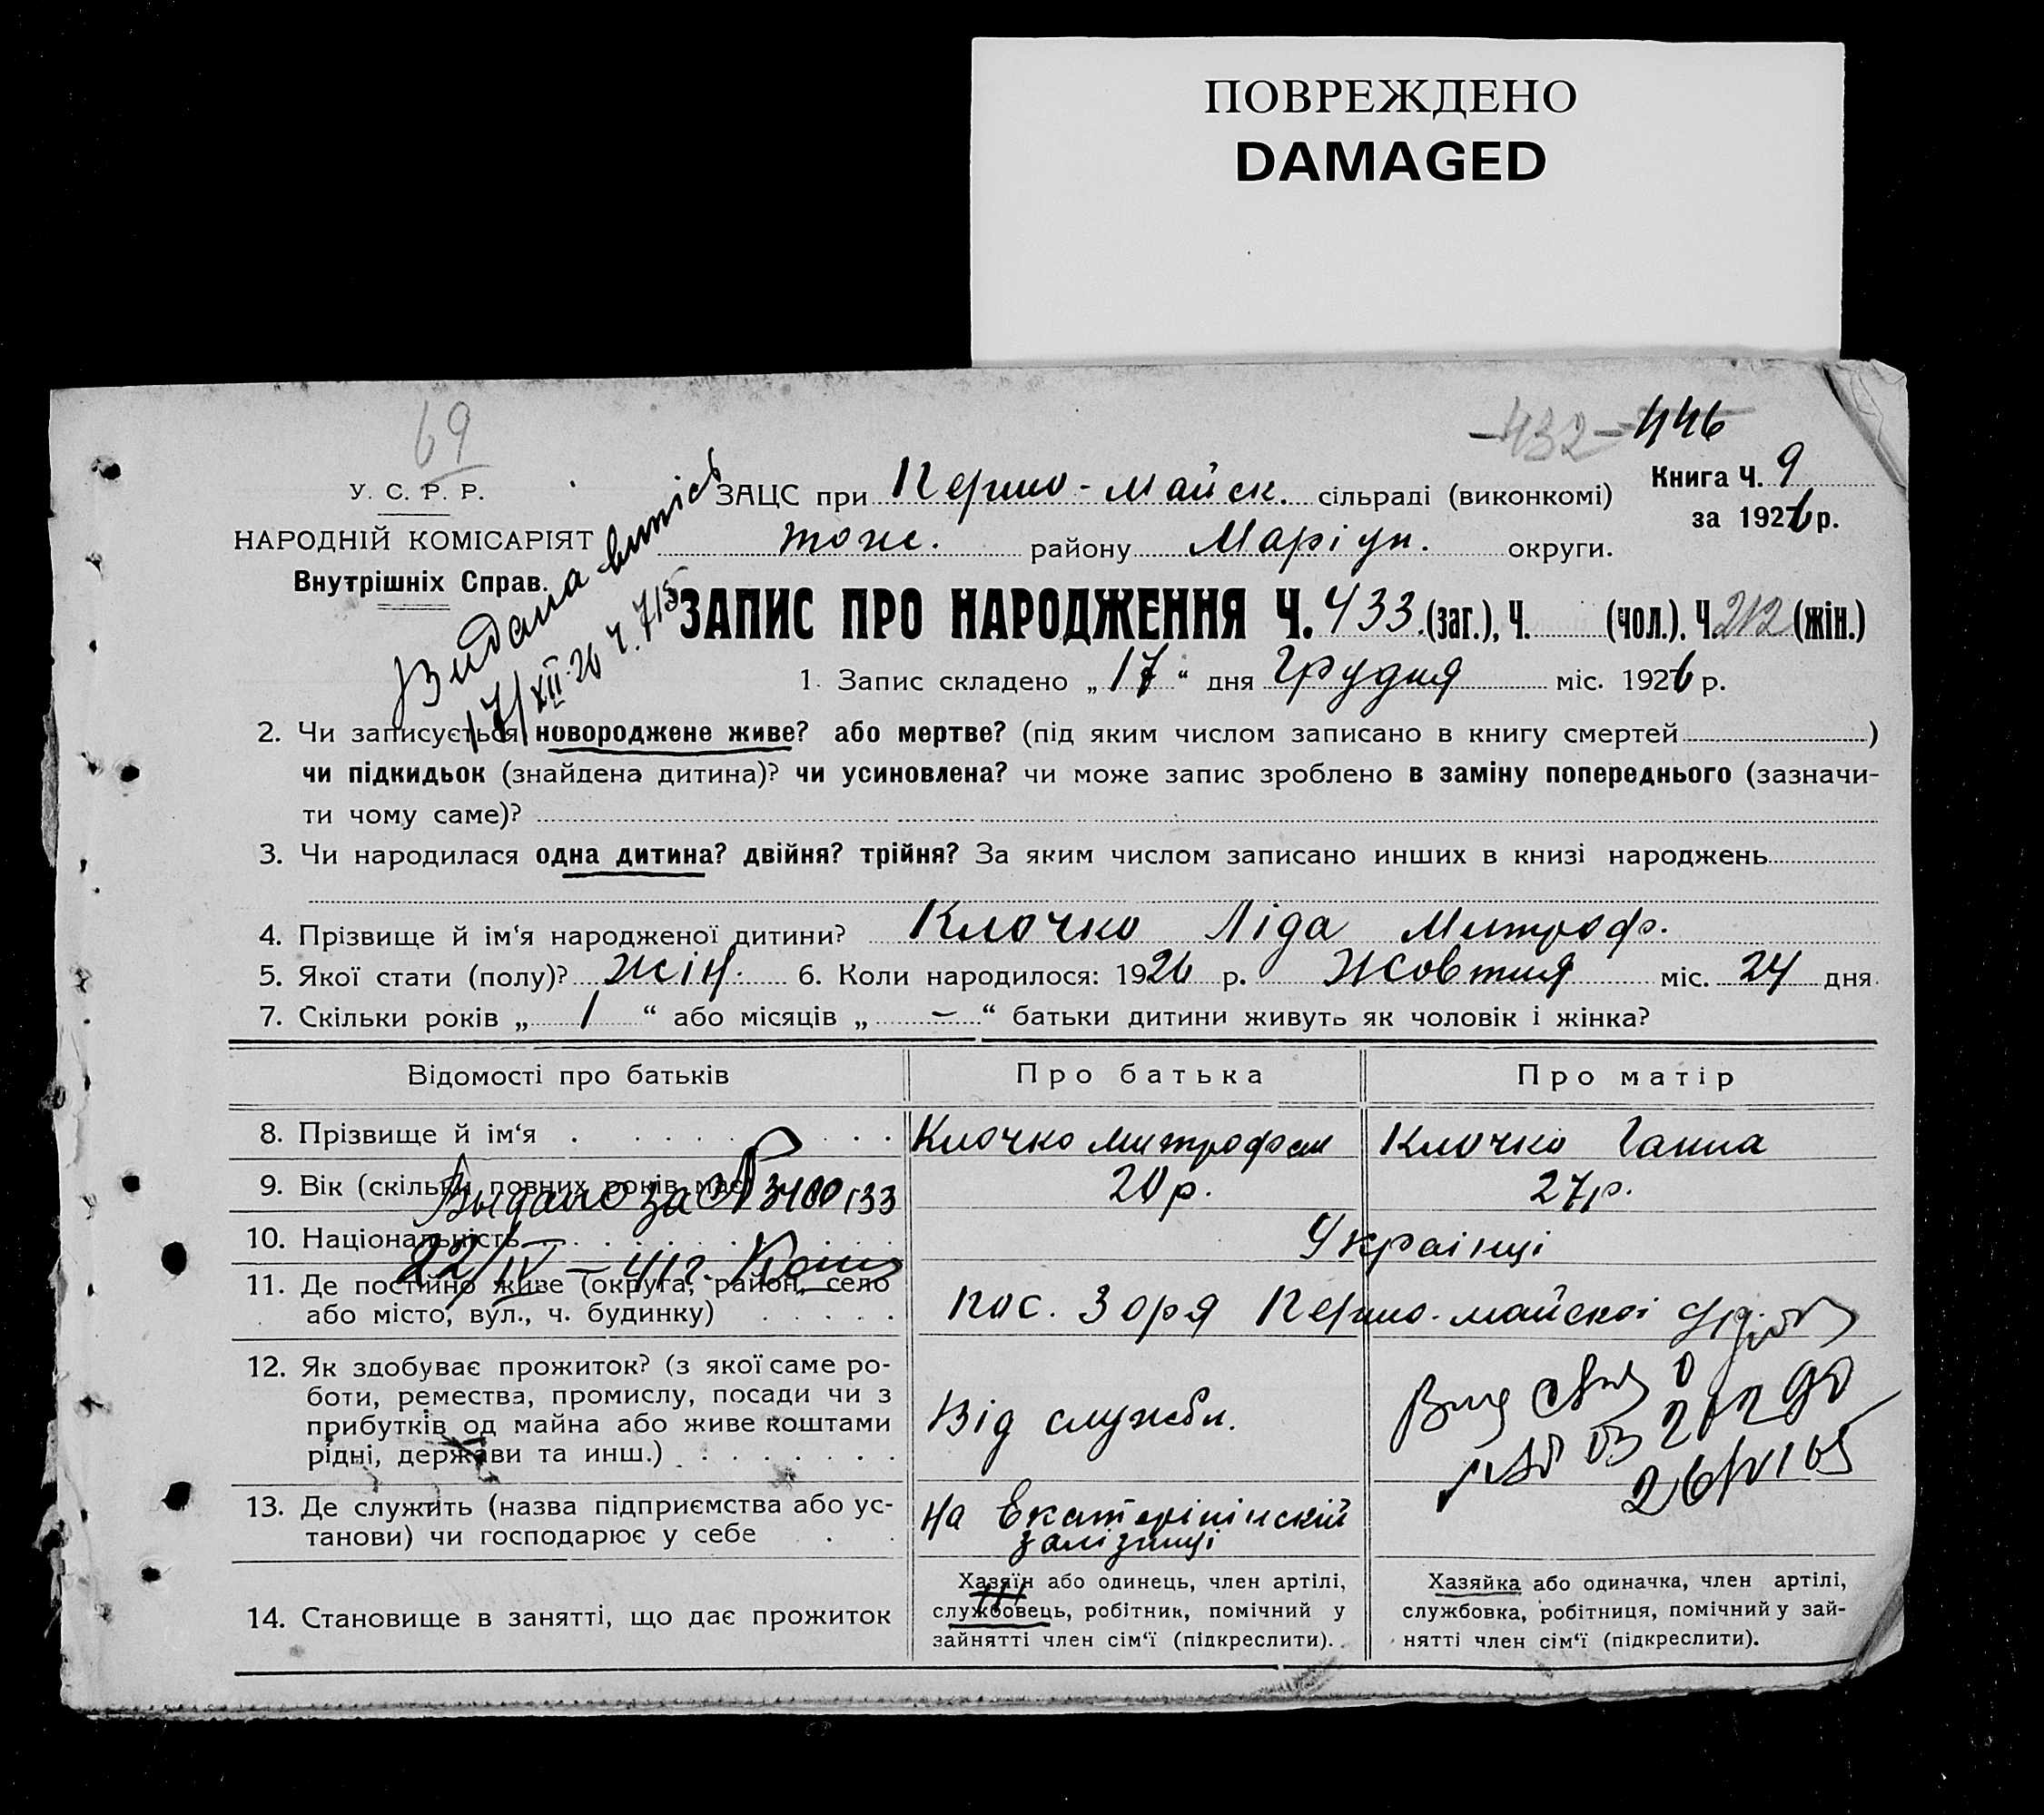 ПОВРЕЖДЕНО
DAMAGED
69
-432- 446
У. С. Р. Р.
НАРОДНІЙ КОМІСАРІЯТ
Внутрішніх Справ.
Видана випись
17/XII-26 ч. 715
ЗАЦС при Першо-Майск. сільраді (виконкомі)
Книга Ч. 9
за 1926 р.
тож. району Маріуп. округи.
ЗАПИС ПРО НАРОДЖЕННЯ Ч. 433 (заг.), Ч. (чол.). Ч. 212 (жін.)
1. Запис складено „17“ дня Грудня міс. 1926 р.
2. Чи записується новороджене живе? або мертве? (під яким числом записано в книгу смертей )
чи підкидьок (знайдена дитина)? чи усиновлена? чи може запис зроблено в заміну попереднього (зазначи-
ти чому саме)?
3. Чи народилася одна дитина? двійня? трійня? За яким числом записано инших в книзі народжень
4. Прізвище й ім‘я народженої дитини? Клочко Ліда Митроф.
5. Якої стати (полу)? жін. 6. Коли народилося: 1926 р. Жовтня міс. 24 дня
7. Скільки років „ 1 “ або місяців „ – “ батьки дитини живуть як чоловік і жінка?
Відомості про батьків
Про батька
Про матір
8. Прізвище й ім‘я
Клочко Митрофан
Клочко Ганна
9. Вік (скільки повних років має)
20 р.
27 р.
Выдано за №
10. Національність
Українці
22/IV – 41 г.
11. Де постійно живе (округа, район, село
або місто, вул., ч. будинку)
пос. Зоря Першо-майскої
12. Як здобуває прожиток? (з якої саме ро-
боти, ремества, промислу, посади чи з
прибутків од майна або живе коштами
рідні, держави та инш.)
Від службы.
13. Де служить (назва підприємства або ус-
танови) чи господарює у себе
На Екатерінінскій
залізниці
14. Становище в занятті, що дає прожиток
Хазяїн або одинець, член артілі,
службовець, робітник, помічний у
зайнятті член сім‘ї (підкреслити).
Хазяйка або одиначка, член артілі,
службовка, робітниця, помічний у зай-
нятті член сім‘ї (підкреслити).